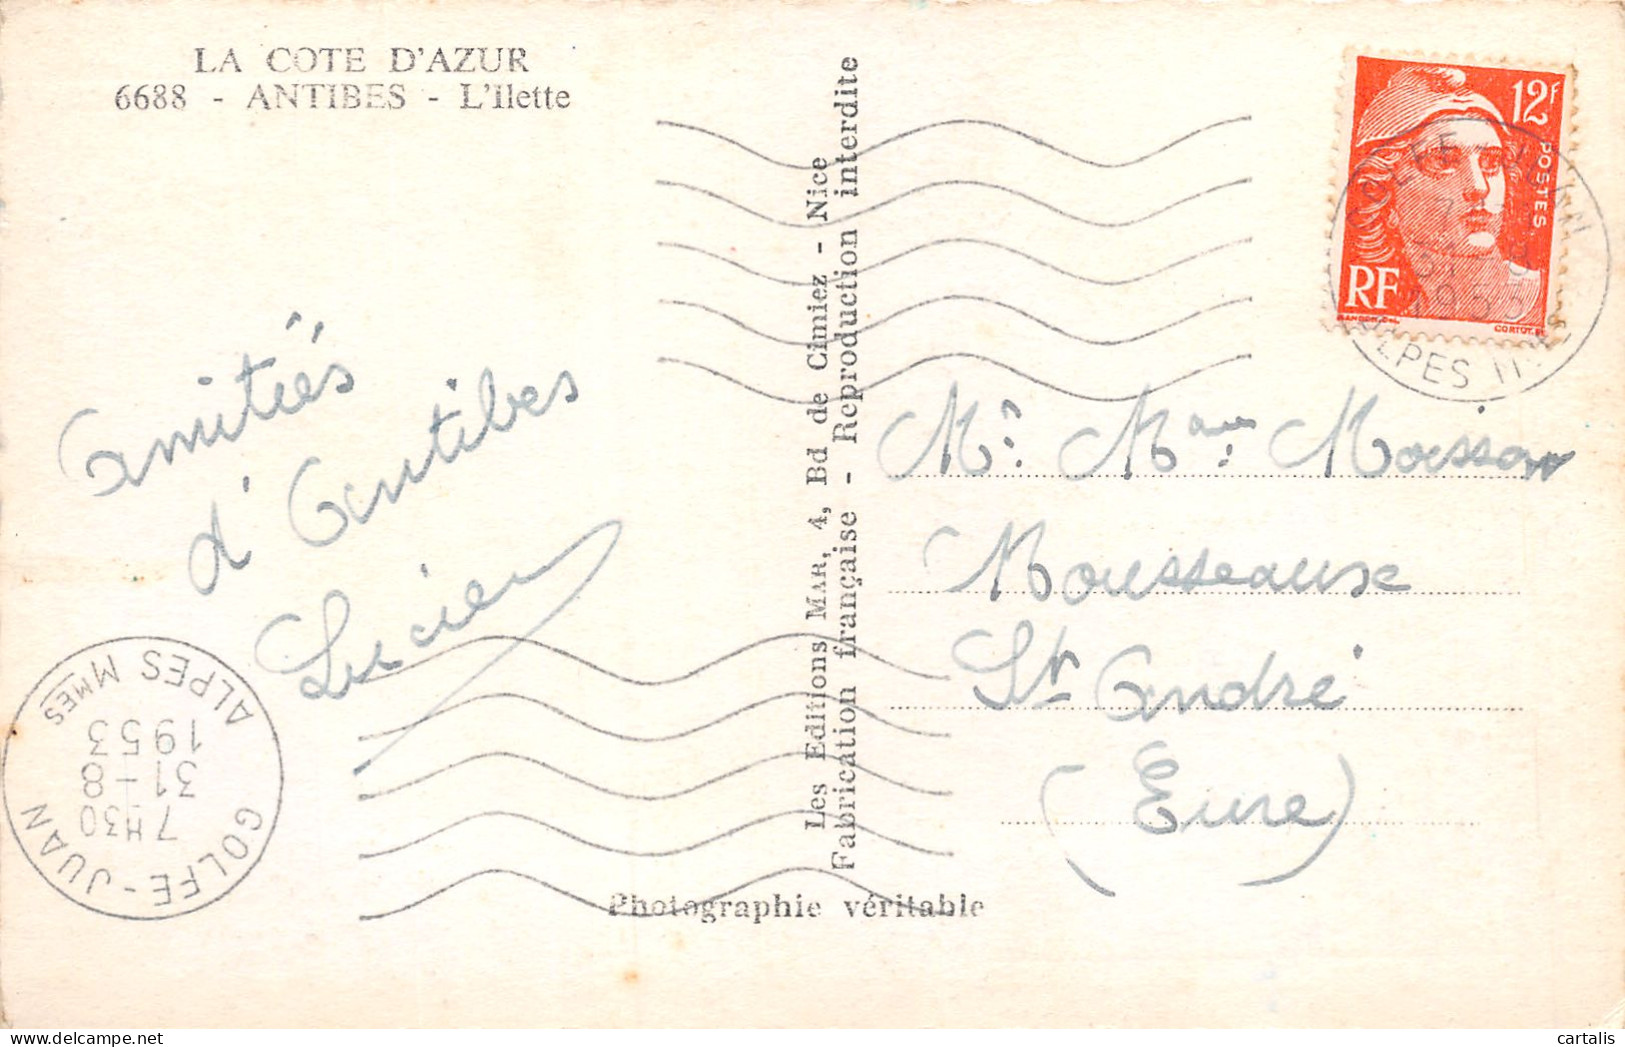 LA COTE D'AZUR
6688 - ANTIBES - L'Ilette
Amitiés
d'Antibes
Lucien
Les Editions MAR, 4, Bd de Cimiez - Nice
Fabrication française - Reproduction interdite
Photographie véritable
12F
POSTES
RF
CORTOT
GOLFE-JUAN
7H30
31-8
1953
ALPES MMES
Mr. Mme Moisson
Mousseaux
St André
(Eure)
GOLFE-JUAN
7H30
31-8
1953
ALPES MMES
cartalis.com